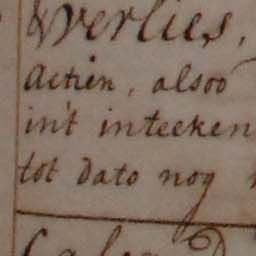 & Verlies,
Actien, alsoo
in't inteeken
tot dato nog